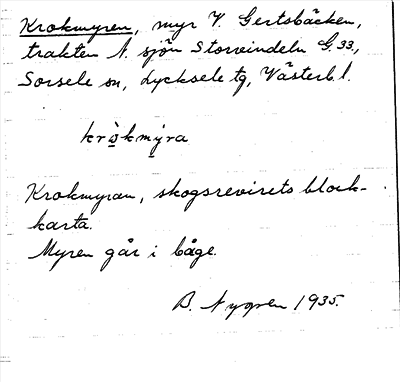 Krokmyren, myr V. Gertsbäcken,
trakten N. sjön Storvindeln G. 33,
Sorsele sn, Lycksele tg, Västerb. l.
kròkmýra
Krokmyran, skogsrevirets block-
karta.
Myren går i båge.
B. Nygren 1935.